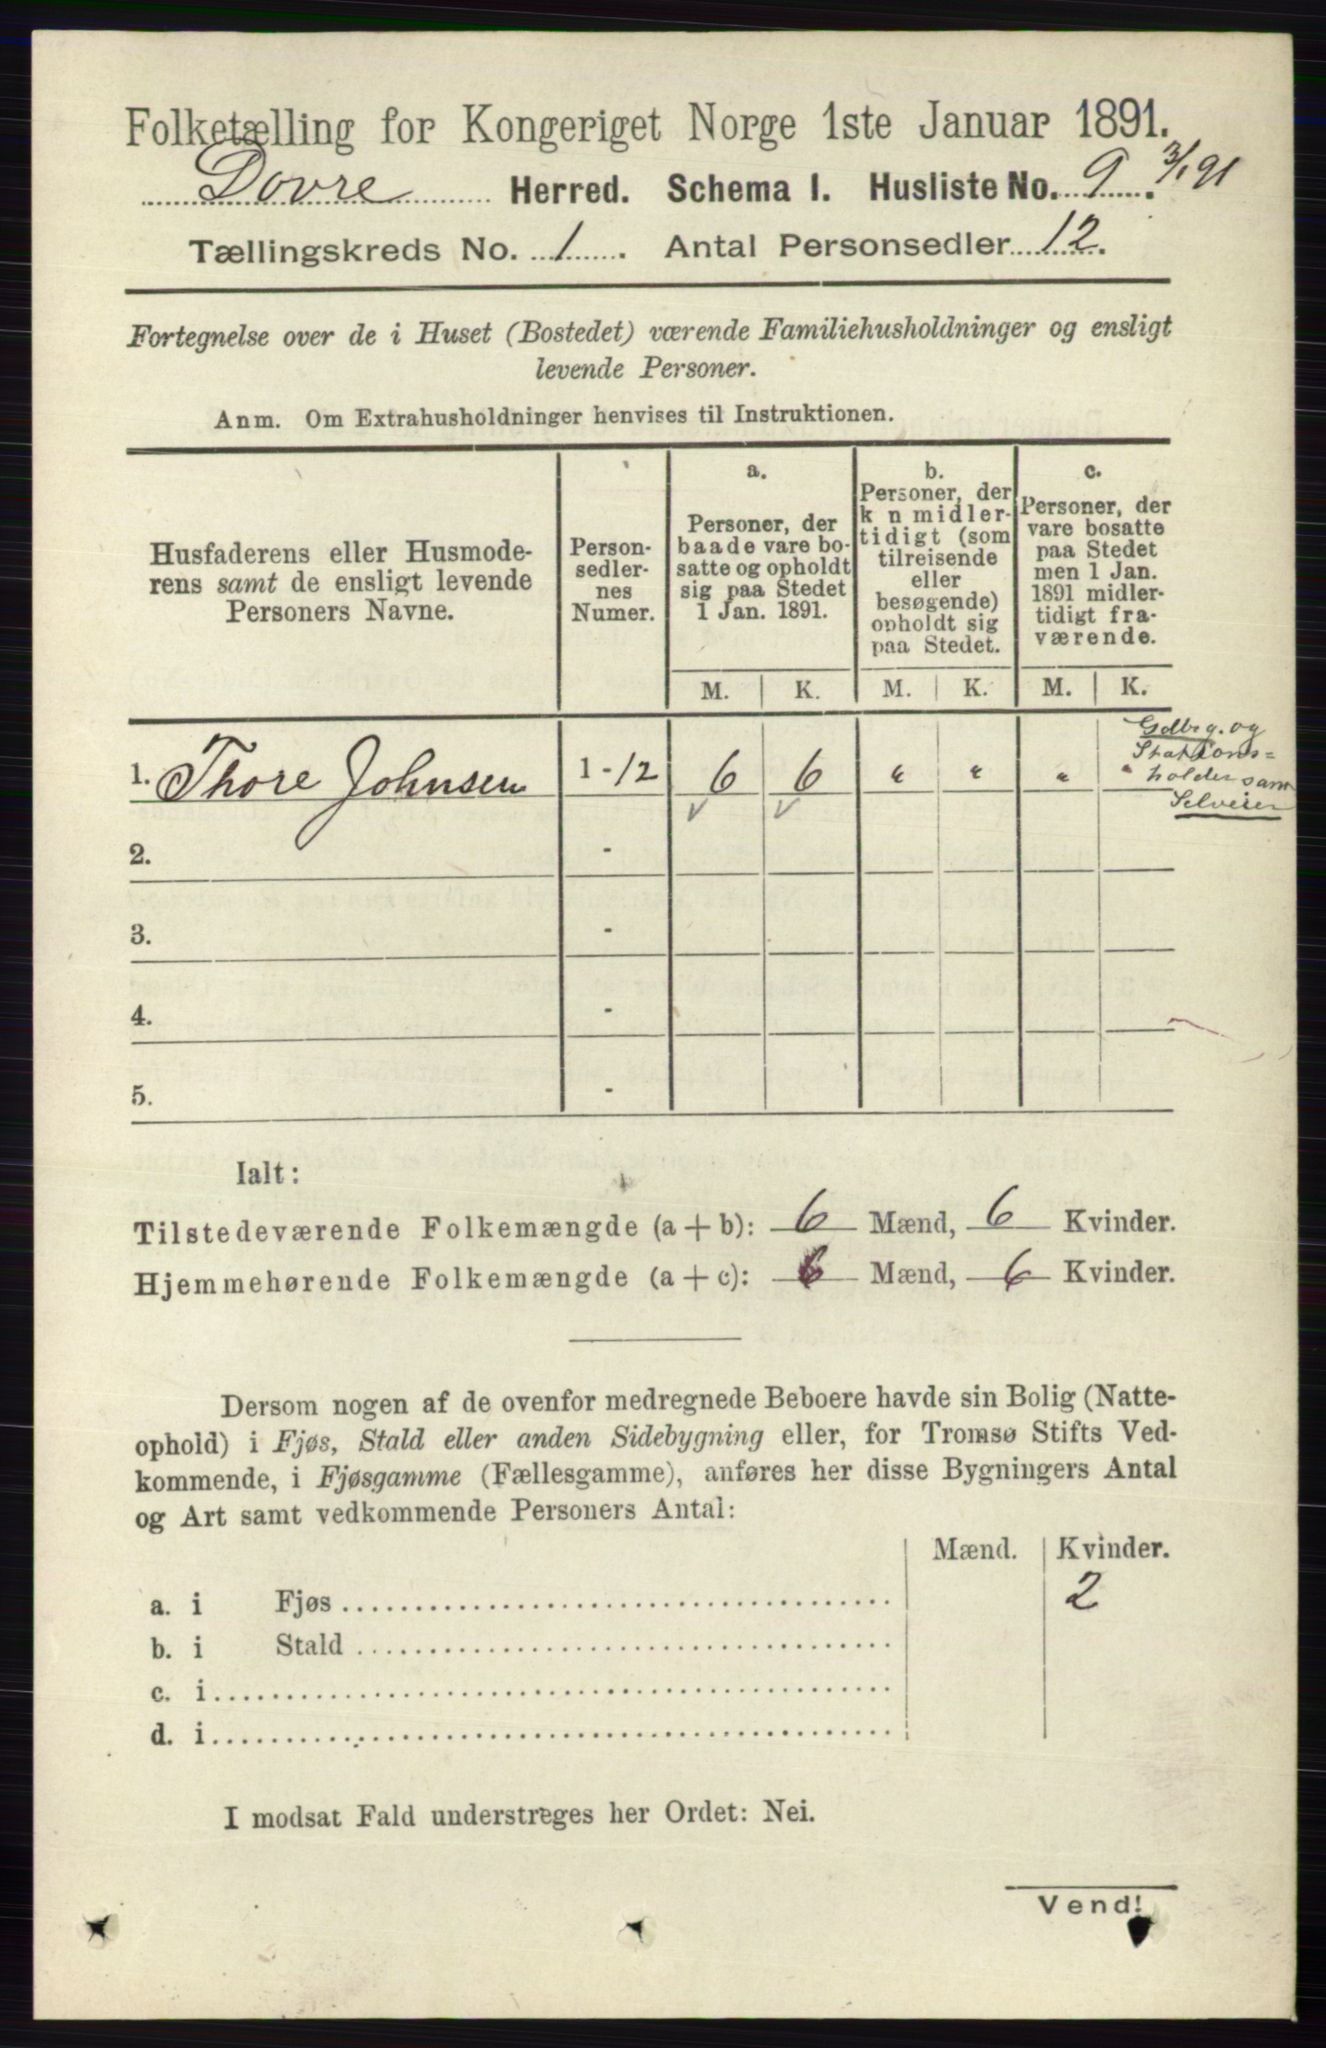 Folketælling for Kongeriget Norge 1ste Januar 1891.
Dovre Herred. Schema I. Husliste No. 9. 3/1 91
Tællingskreds No. 1. Antal Personsedler 12.
Fortegnelse over de i Huset (Bostedet) værende Familiehusholdninger og ensligt
levende Personer.
Anm. Om Extrahusholdninger henvises til Instruktionen.
Husfaderens eller Husmode-
rens samt de ensligt levende
Personers Navne.
Person-
sedler-
nes
Numer.
a.
Personer, der
baade vare bo-
satte og opholdt
sig paa Stedet
1 Jan. 1891.
b.
Personer, der
k n midler-
tidigt (som
tilreisende
eller
besøgende)
opholdt sig
paa Stedet.
c.
Personer, der
vare bosatte
paa Stedet
men 1 Jan.
1891 midler-
tidigt fra-
værende.
M. K. M. K. M. K.
1. Thore Johnsen 1-12 6 6 " " " "
Gdbrg. og
Stations=
holder samt
Selveier
2. -
3. -
4. -
5. -
Ialt:
Tilstedeværende Folkemængde (a + b): 6 Mænd, 6 Kvinder.
Hjemmehørende Folkemængde (a + c): 6 Mænd, 6 Kvinder.
Dersom nogen af de ovenfor medregnede Beboere havde sin Bolig (Natte-
ophold) i Fjøs, Stald eller anden Sidebygning eller, for Tromsø Stifts Ved-
kommende, i Fjøsgamme (Fællesgamme), anføres her disse Bygningers Antal
og Art samt vedkommende Personers Antal:
Mænd. Kvinder.
a. i Fjøs 2
b. i Stald
c. i
d. i
I modsat Fald understreges her Ordet: Nei.
Vend!